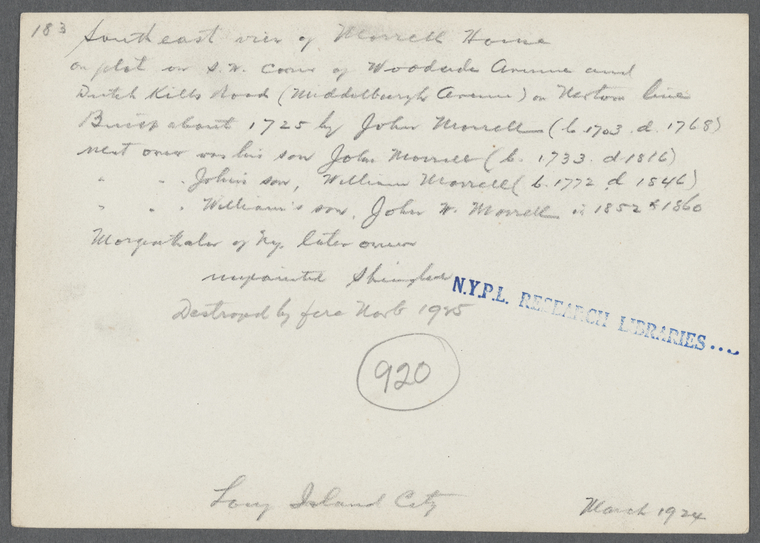 183
South east view of Morrell House
on plot on S.W. corner of Woodside Avenue and
Dutch Kills Road (Middelburgh Avenue) on Newtown line
Built about 1725 by John Morrell (b. 1703. d. 1768)
next owner was his son John Morrell (b. 1733. d 1816)
" " . John's son, William Morrell (b. 1772 d 1846)
" " . William's son, John W. Morrell in 1852 & 1860
of Ny. later owner
unpainted Shingled
Destroyed by fire 1925
N.Y.P.L. RESEARCH LIBRARIES
920
Long Island City
March 1924